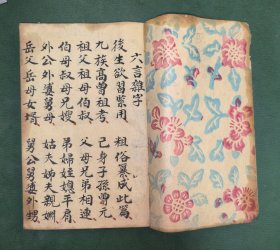 六言雜字
後生欲習緊用　粗俗纂成此篇
九族高曾祖考　己身子孫曾元
祖父祖母伯叔　父母兄弟相連
伯母叔母兄嫂　弟婦姪媳平肩
外公外婆舅母　姑夫姊夫親姻
岳父岳母女壻　舅公舅婆外甥